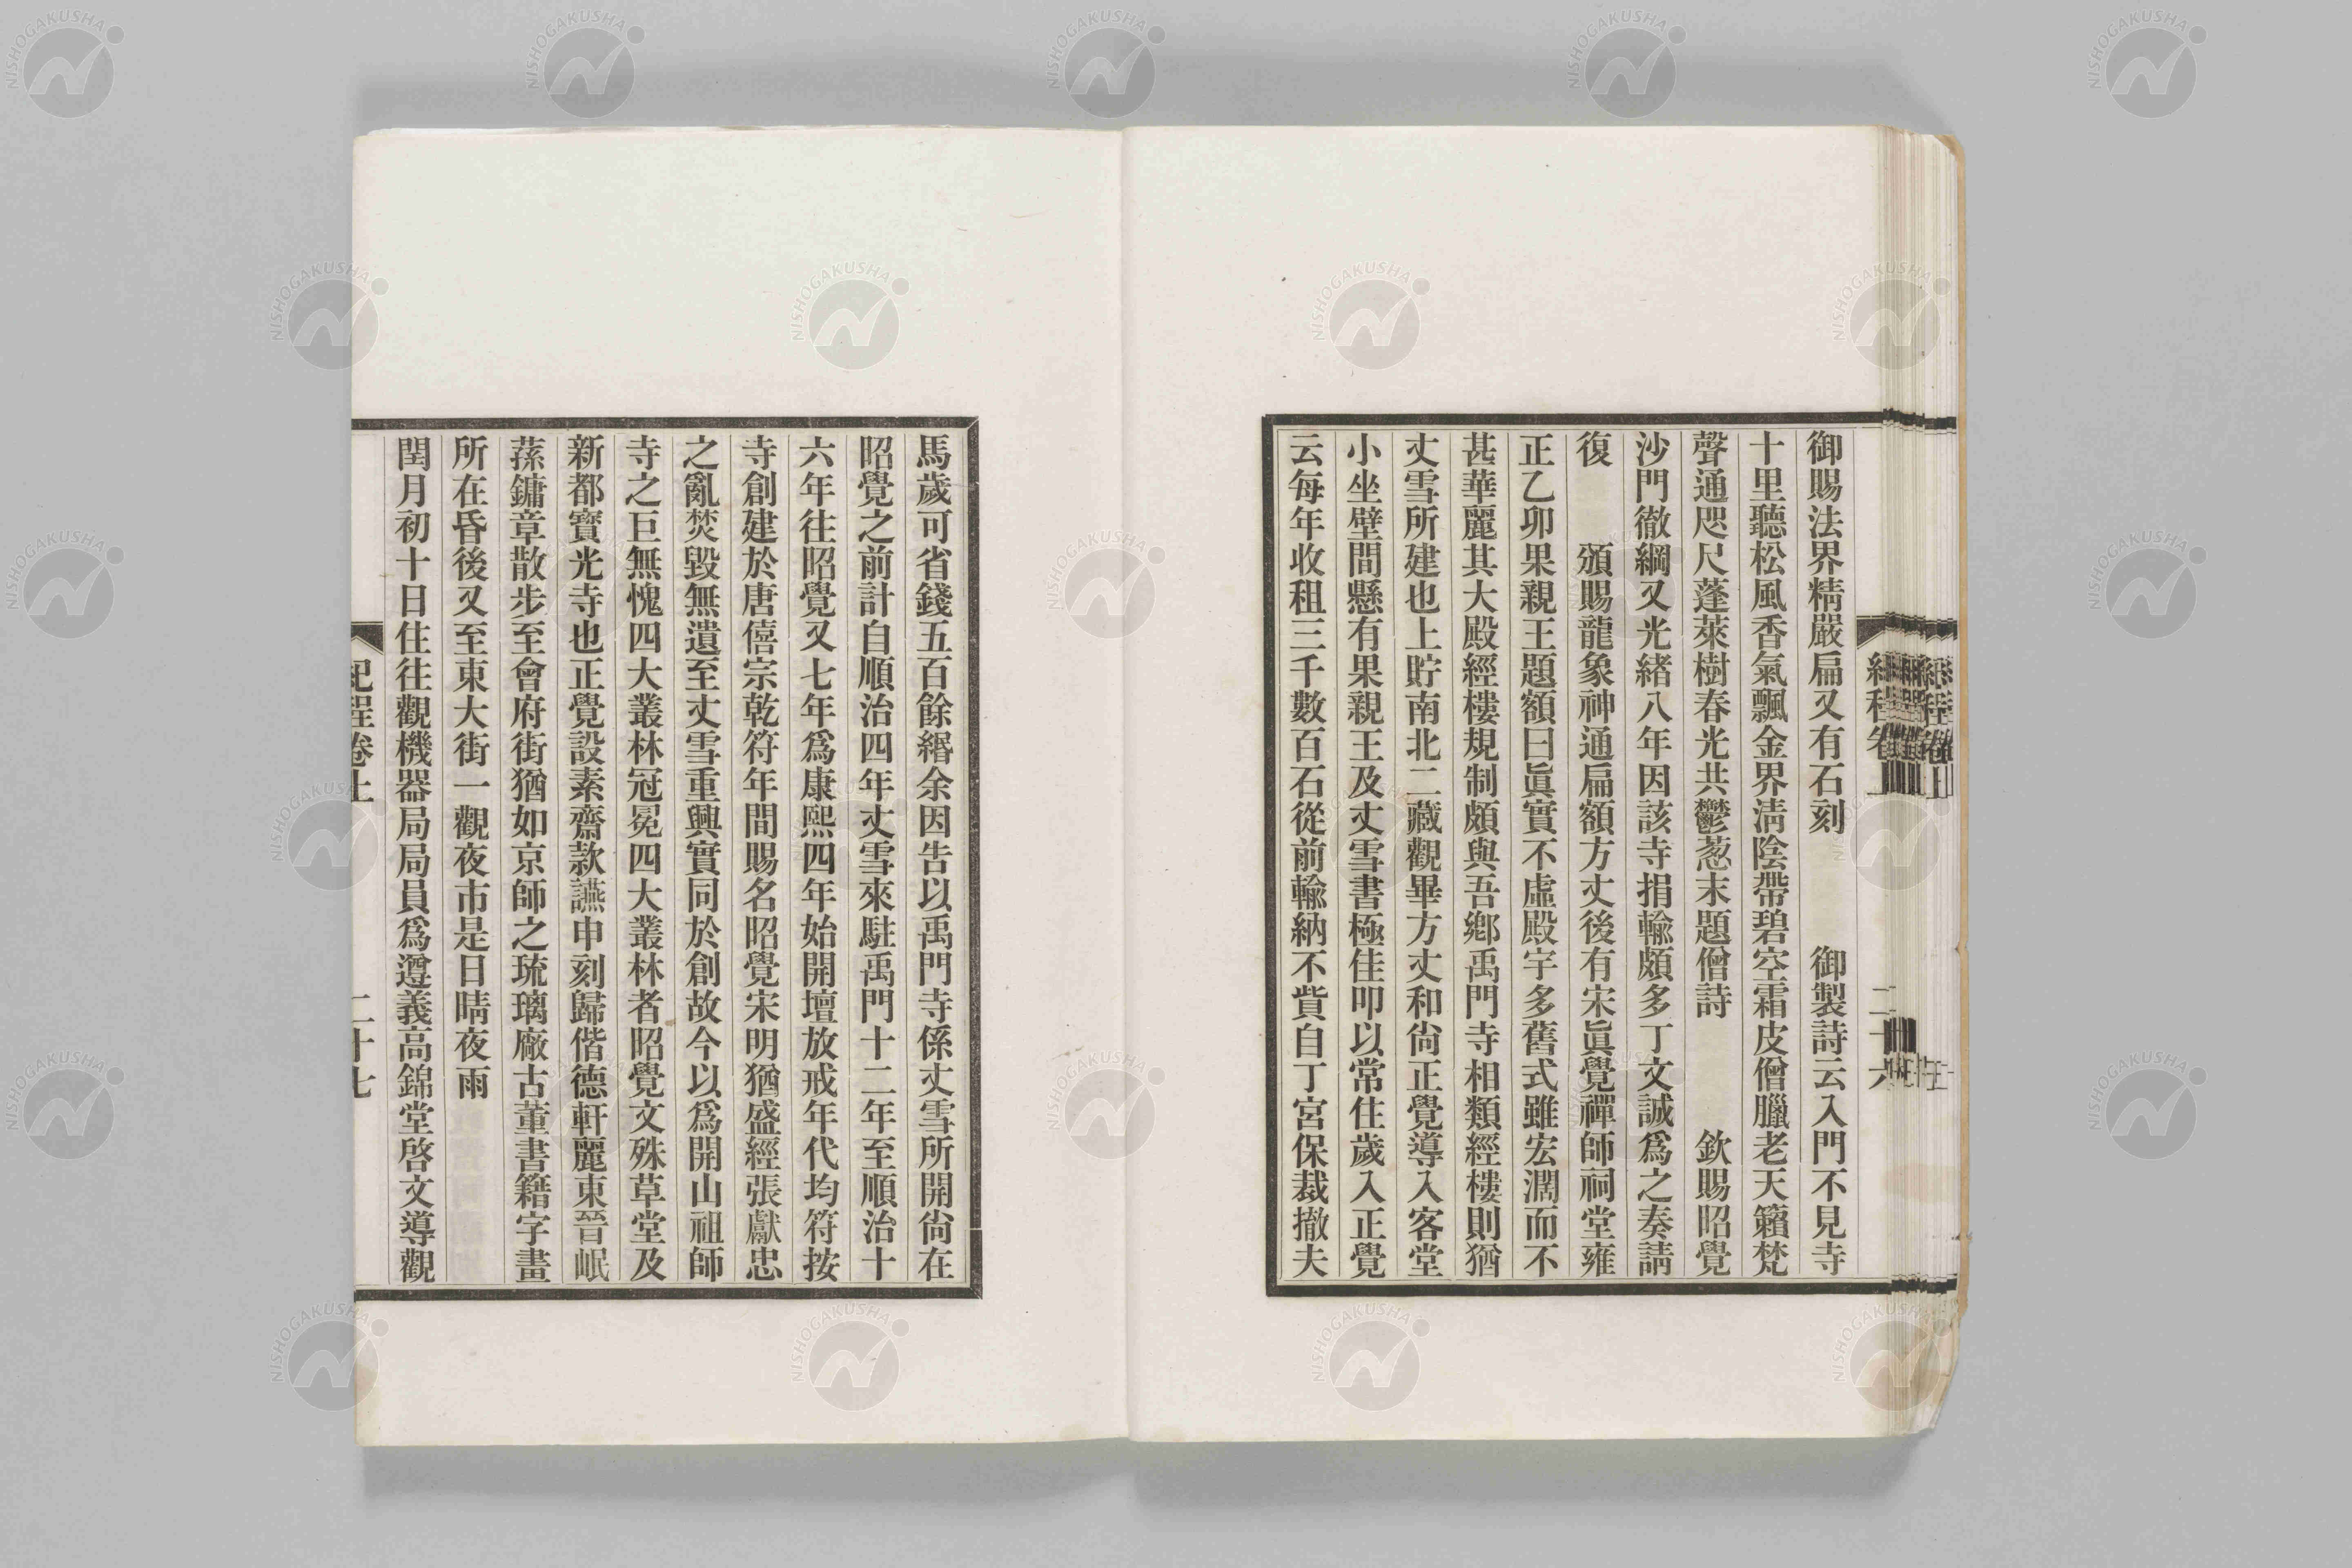 御賜法界精嚴扁又有石刻　　　御製詩云入門不見寺
十里聽松風香氣飄金界淸陰帶碧空霜皮僧臘老天籟梵
聲通咫尺蓬萊樹春光共鬱葱末題僧詩　　　欽賜昭覺
沙門徹綱又光緒八年因該寺捐輸頗多丁文誠爲之奏請
復　　頒賜龍象神通扁額方丈後有宋眞覺禪師祠堂雍
正乙卯果親王題額曰眞實不虛殿宇多舊式雖宏濶而不
甚華麗其大殿經樓規制頗與吾鄕禹門寺相類經樓則猶
丈雪所建也上貯南北二藏觀畢方丈和尙正覺導入客堂
小坐壁間懸有果親王及丈雪書極佳叩以常住歲入正覺
云每年收租三千數百石從前輸納不貲自丁宮保裁撤夫
馬歲可省錢五百餘緡余因告以禹門寺係丈雪所開尙在
昭覺之前計自順治四年丈雪來駐禹門十二年至順治十
六年往昭覺又七年爲康熙四年始開壇放戒年代均符按
寺創建於唐僖宗乾符年間賜名昭覺宋明猶盛經張獻忠
之亂焚毀無遺至丈雪重興實同於創故今以爲開山祖師
寺之巨無愧四大叢林冠冕四大叢林者昭覺文殊草堂及
新都寶光寺也正覺設素齋款讌申刻歸偕德軒麗東晉岷
蓀鏞章散步至會府街猶如京師之琉璃廠古董書籍字畫
所在昏後又至東大街一觀夜市是日晴夜雨
閏月初十日住往觀機器局局員爲遵義高錦堂啓文導觀
紀程卷上
二十七